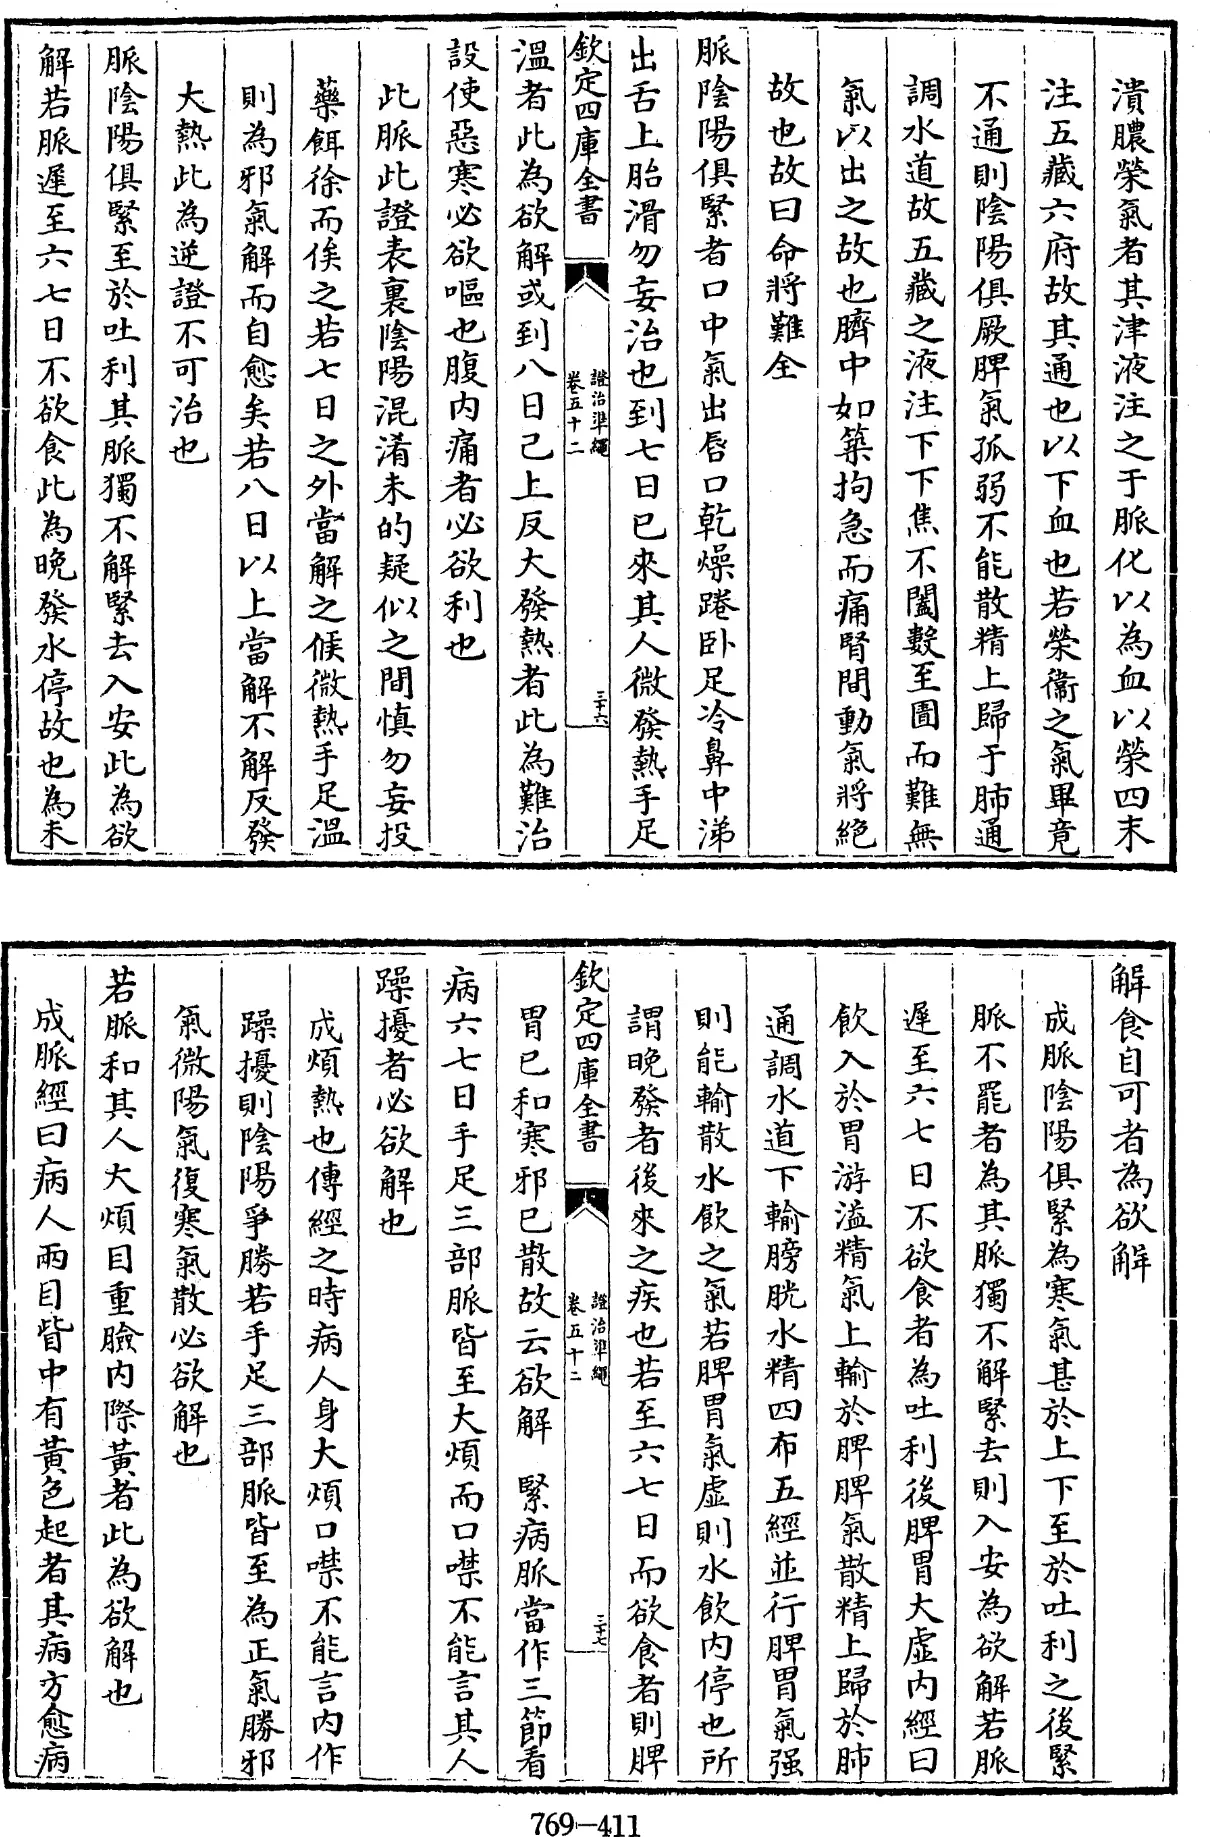 潰膿榮氣者其津液注之于脈化以為血以榮四末
注五藏六府故其通也以下血也若榮衞之氣畢竟
不通則陰陽俱厥脾氣孤弱不能散精上歸于肺通
調水道故五藏之液注下下焦不闔數至圊而難無
氣以出之故也臍中如築拘急而痛腎間動氣將絶
故也故曰命將難全
脈陰陽俱緊者口中氣出唇口乾燥踡卧足冷鼻中涕
出舌上胎滑勿妄治也到七日已來其人微發熱手足
欽定四庫全書
證治準繩
卷五十二
三十六
溫者此為欲解或到八日已上反大發熱者此為難治
設使惡寒必欲嘔也腹内痛者必欲利也
此脈此證表裏陰陽混淆未的疑似之間慎勿妄投
藥餌徐而俟之若七日之外當解之候微熱手足溫
則為邪氣解而自愈矣若八日以上當解不解反發
大熱此為逆證不可治也
脈陰陽俱緊至於吐利其脈獨不解緊去入安此為欲
解若脈遲至六七日不欲食此為晚發水停故也為未
解食自可者為欲解
成脈陰陽俱緊為寒氣甚於上下至於吐利之後緊
脈不罷者為其脈獨不解緊去則入安為欲解若脈
遲至六七日不欲食者為吐利後脾胃大虛内經曰
飲入於胃游溢精氣上輸於脾脾氣散精上歸於肺
通調水道下輸膀胱水精四布五經並行脾胃氣强
則能輸散水飲之氣若脾胃氣虛則水飲内停也所
謂晚發者後來之疾也若至六七日而欲食者則脾
欽定四庫全書
證治準繩
卷五十二
三十七
胃已和寒邪已散故云欲解　緊病脈當作三節看
病六七日手足三部脈皆至大煩而口噤不能言其人
躁擾者必欲解也
成煩熱也傳經之時病人身大煩口噤不能言内作
躁擾則陰陽爭勝若手足三部脈皆至為正氣勝邪
氣微陽氣復寒氣散必欲解也
若脈和其人大煩目重臉内際黃者此為欲解也
成脈經曰病人兩目眥中有黃色起者其病方愈病
769-411